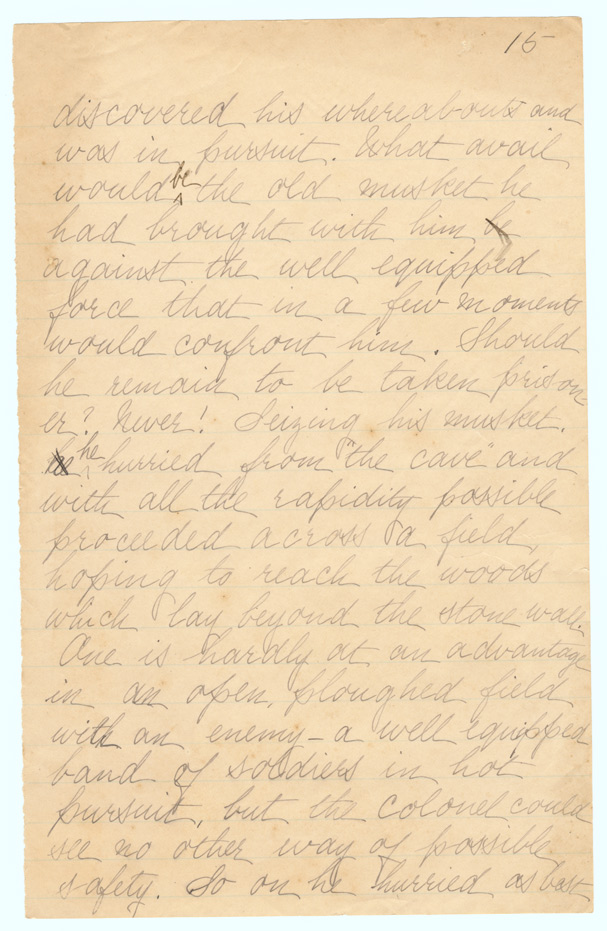 15
discovered his whereabouts and
was in pursuit. What avail
would be the old musket he
had brought with him
against the well equipped
force that in a few moments
would confront him. Should
he remain to be taken prison-
er? Never! Seizing his musket.
he hurried from "the cave" and
with all the rapidity possible
proceeded across a field,
hoping to reach the woods
which lay beyond the stone wall.
One is hardly at an advantage
in an open, ploughed field
with an enemy - a well equipped
band of soldiers in hot
pursuit, but the colonel could
see no other way of possible
safety. So on he hurried as best